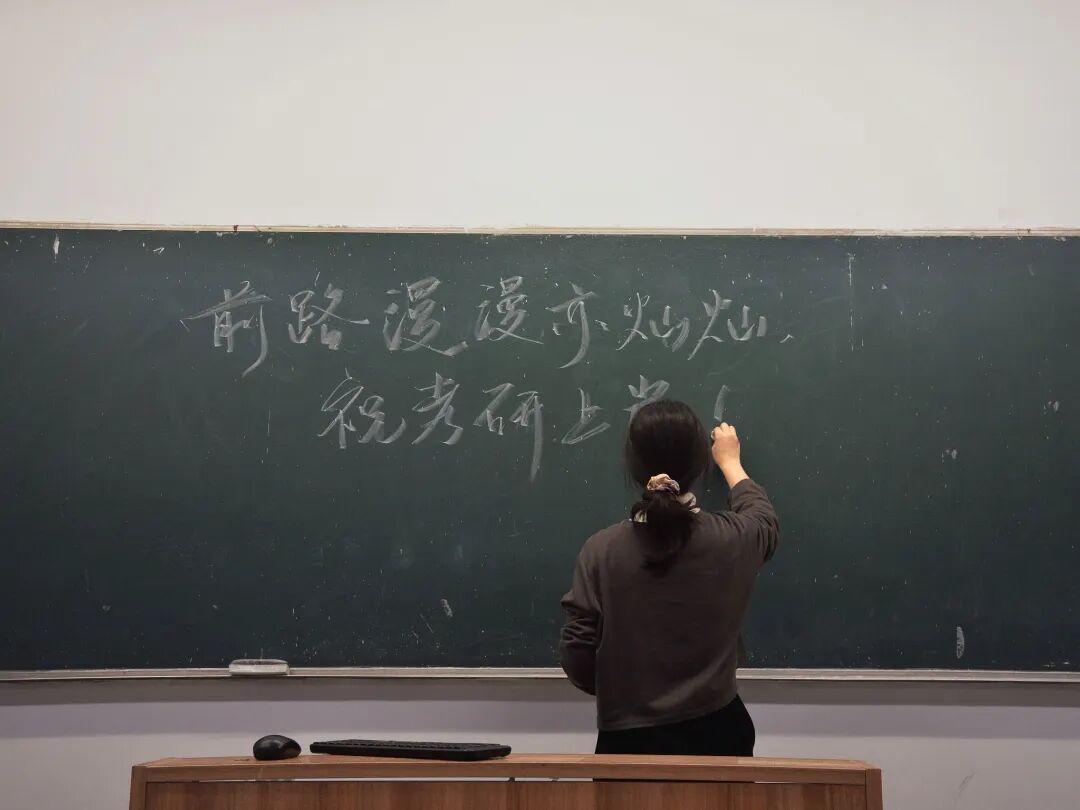 前路漫漫亦灿灿、
祝考研上岸！